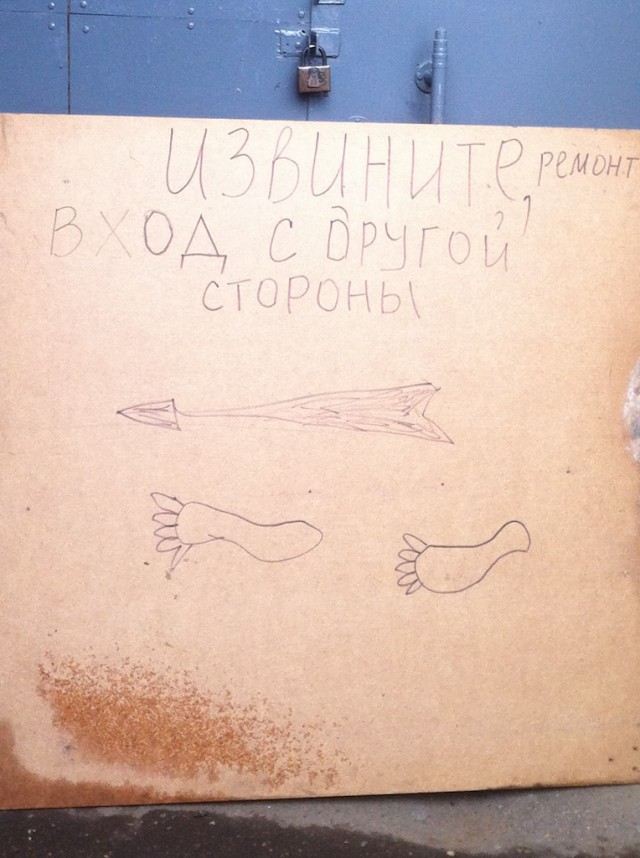 ИЗВИНИТЕ, РЕМОНТ
ВХОД С ДРУГОЙ
СТОРОНЫ